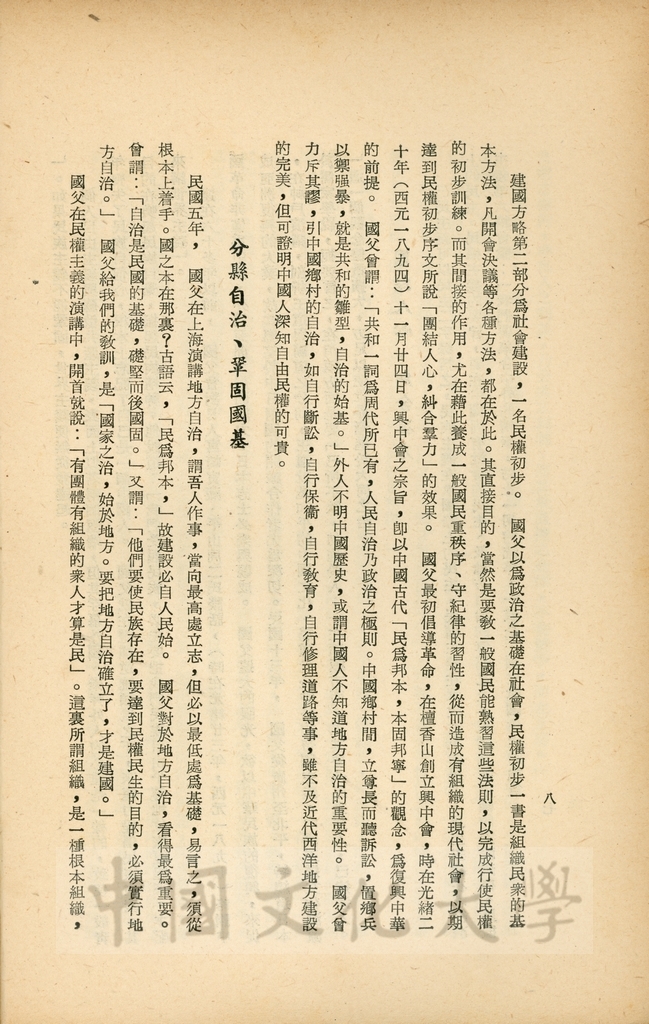 八
建國方略第二部分爲社會建設，一名民權初步。　國父以爲政治之基礎在社會，民權初步一書是組織民衆的基
本方法，凡開會決議等各種方法，都在於此。其直接目的，當然是要敎一般國民能熟習這些法則，以完成行使民權
的初步訓練。而其間接的作用，尤在藉此養成一般國民重秩序、守紀律的習性，從而造成有組織的現代社會，以期
達到民權初步序文所說「團結人心，糾合羣力」的效果。　國父最初倡導革命，在檀香山創立興中會，時在光緒二
十年（西元一八九四）十一月廿四日，興中會之宗旨，卽以中國古代「民爲邦本，本固邦寧」的觀念，爲復興中華
的前提。　國父曾謂：「共和一詞爲周代所已有，人民自治乃政治之極則。中國鄉村間，立尊長而聽訴訟，置鄉兵
以禦强暴，就是共和的雛型，自治的始基。」外人不明中國歷史，或謂中國人不知道地方自治的重要性。　國父曾
力斥其謬，引中國鄉村的自治，如自行斷訟，自行保衞，自行敎育，自行修理道路等事，雖不及近代西洋地方建設
的完美，但可證明中國人深知自由民權的可貴。
分縣自治、鞏固國基
民國五年，　國父在上海演講地方自治，謂吾人作事，當向最高處立志，但必以最低處爲基礎，易言之，須從
根本上着手。國之本在那裏？古語云，「民爲邦本，」故建設必自人民始。　國父對於地方自治，看得最爲重要。
曾謂：「自治是民國的基礎，礎堅而後國固。」又謂：「他們要使民族存在，要達到民權民生的目的，必須實行地
方自治。」　國父給我們的敎訓，是「國家之治，始於地方。要把地方自治確立了，才是建國。」
國父在民權主義的演講中，開首就說：「有團體有組織的衆人才算是民」。這裏所謂組織，是一種根本組織，
中國文化大學